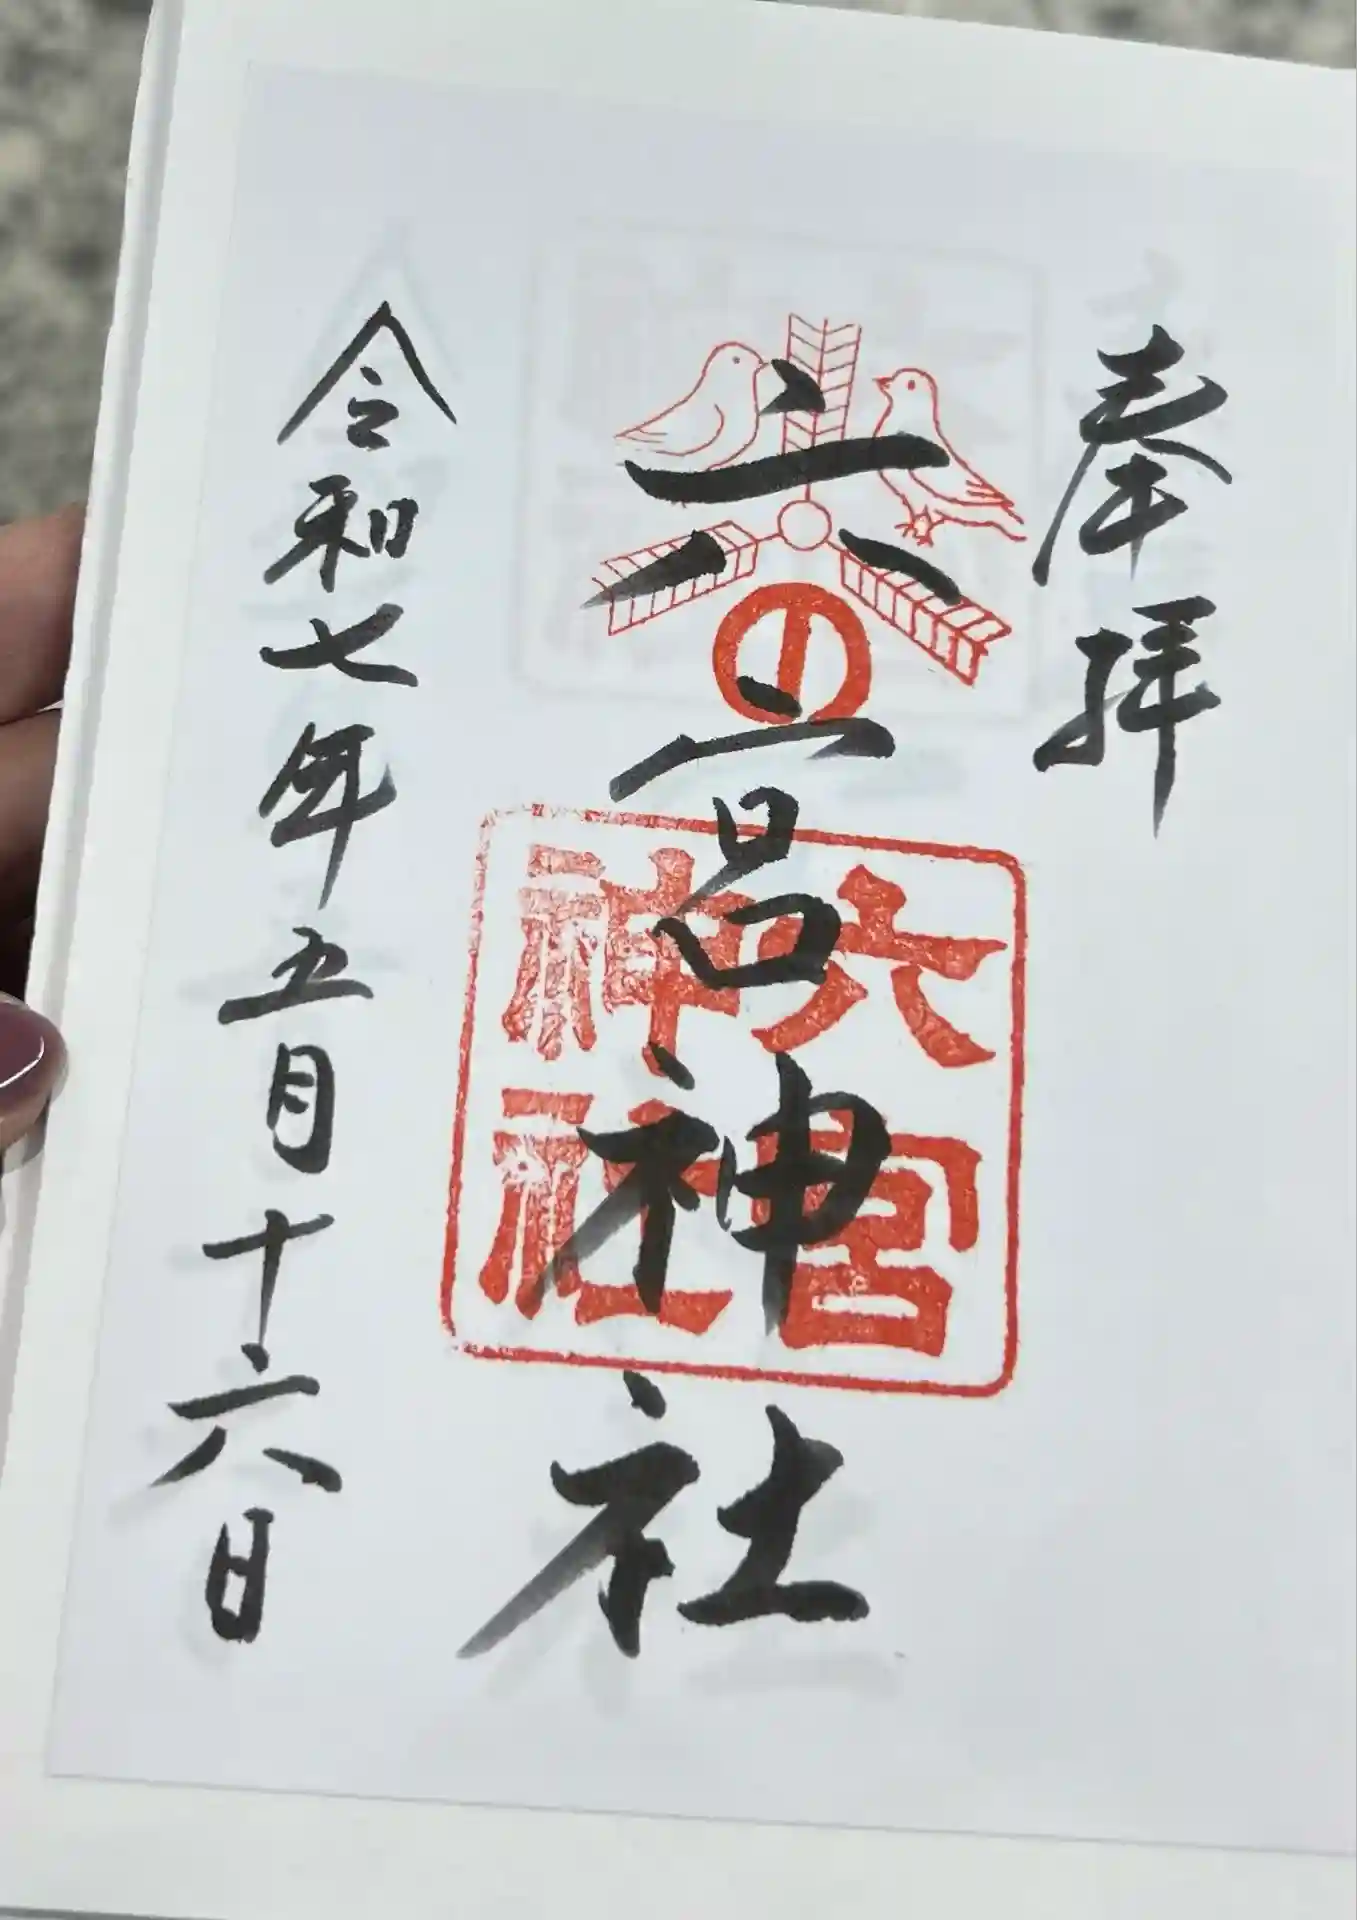 奉拝
六宮神社
六宮
神社
令和七年五月十六日